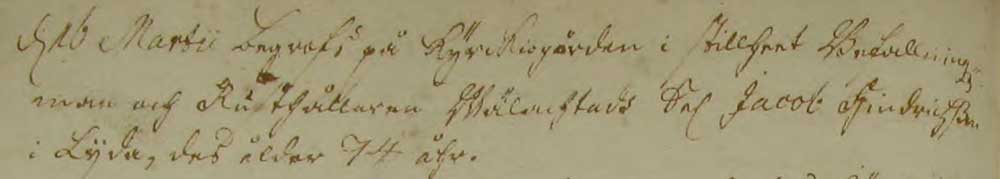 d 16 Martii begrofs på Kyrckiogården i stillheet Befallnings
man och Rusthållaren Wälachtadt Sel Jacob Hindrichsson
i Lyda, des ålder 74 åhr.